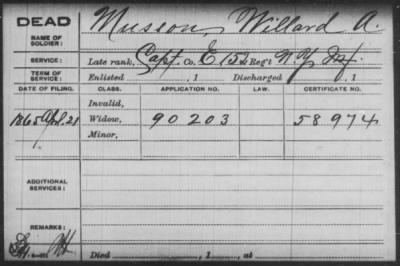 DEAD
NAME OF SOLDIER: Musson, Willard A.
SERVICE: Late rank, Capt. Co. E Reg't N.Y. Inf.
TERM OF SERVICE: Enlisted , 1 Discharged , 1
DATE OF FILING. CLASS. APPLICATION NO. LAW. CERTIFICATE NO.
Invalid,
1865 Apl. 21 Widow, 90203 58974
Minor,
ADDITIONAL SERVICES:
REMARKS:
Died , 1 , at